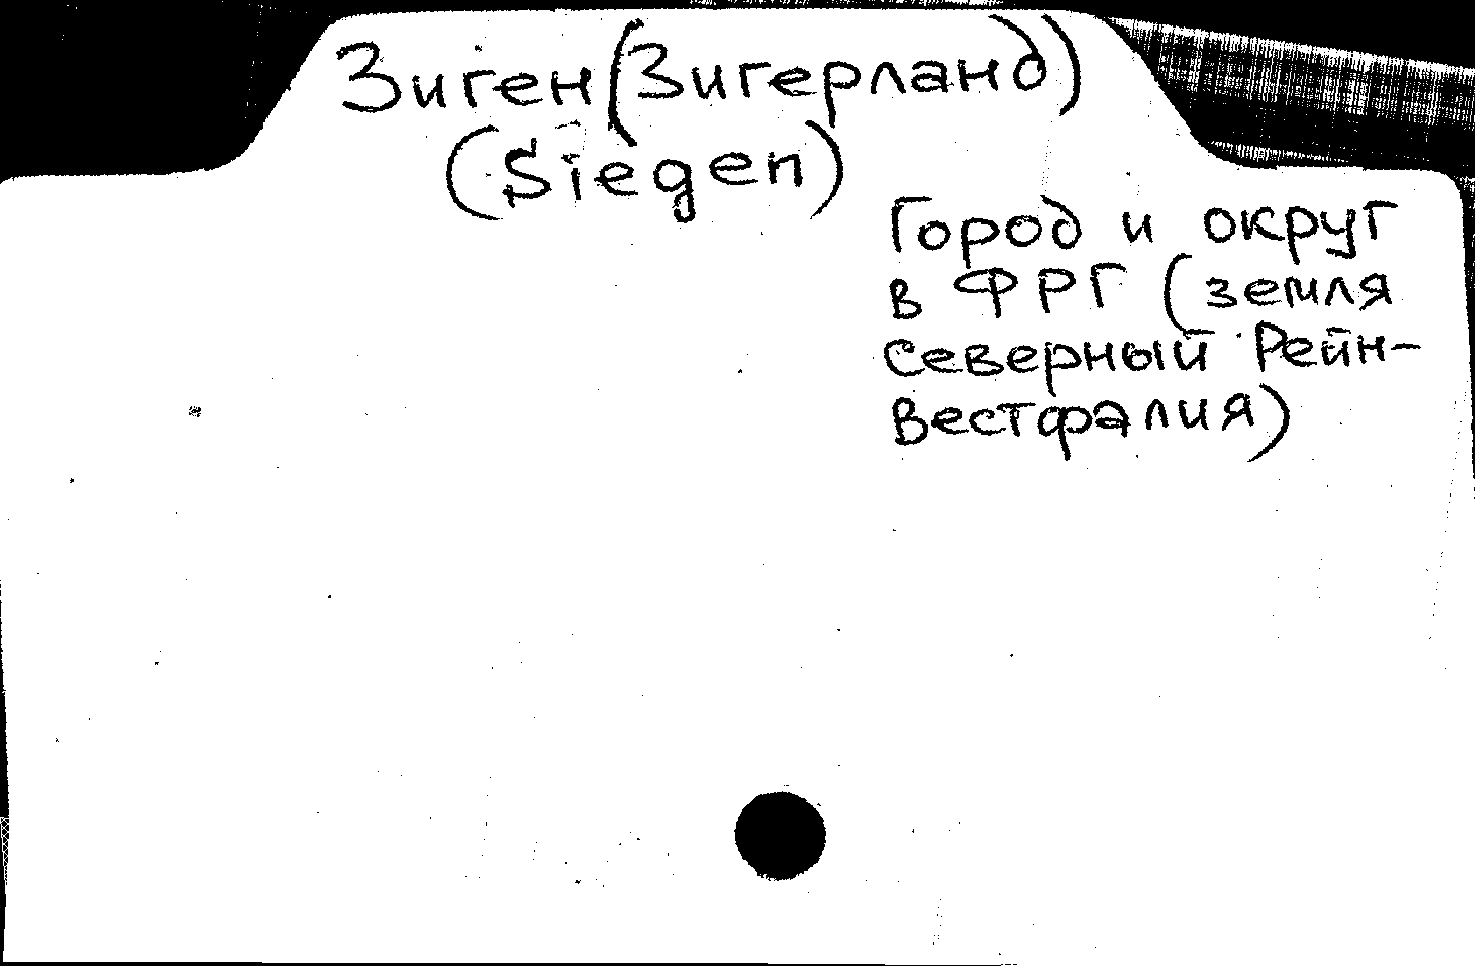 Зиген (Зигерланд)
(Siegen)
Город и округ
в ФРГ (земля
Северный Рейн-
Вестфалия)